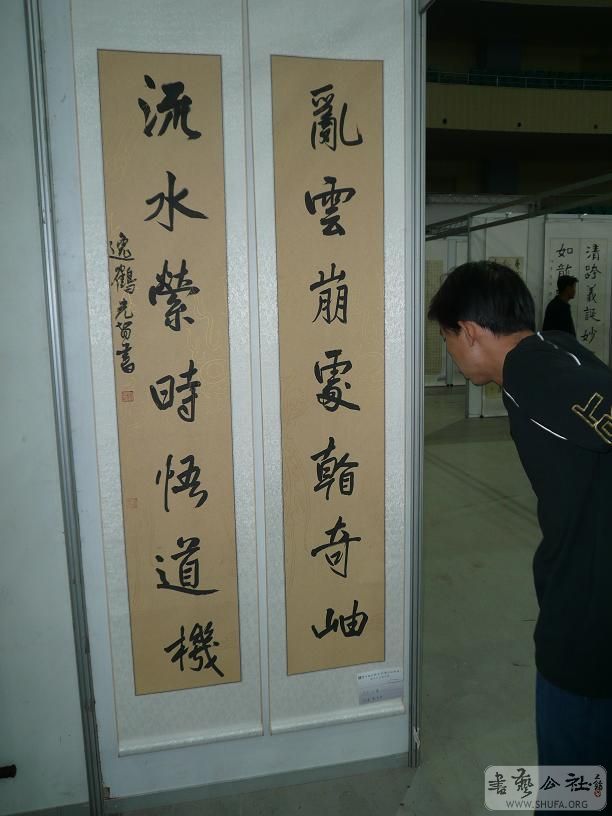 亂雲崩處翰奇岫
流水縈時悟道機
逸鶴
書
如龍
書藝公社
WWW.SHUFA.ORG